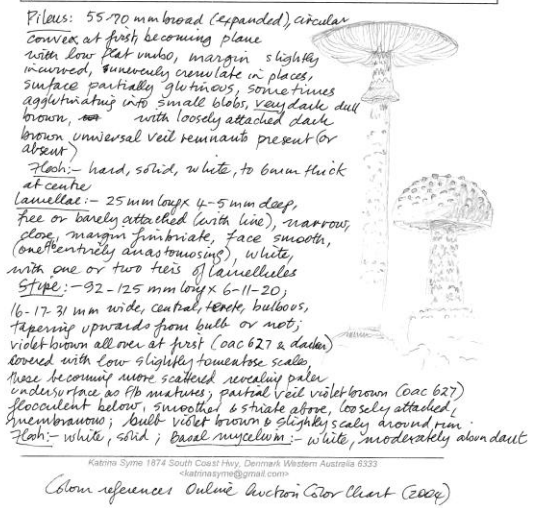 Pileus: 55-70 mm broad (expanded), circular
convex at first, becoming plane
with low flat umbo, margin slightly
incurved, unevenly crenulate in places,
surface partially glutinous, sometimes
agglutinating into small blobs, very dark dull
brown, with loosely attached dark
brown universal veil remnants present (or
absent)
Flesh:- hard, solid, white, to 6mm thick
at centre
Lamellae:- 25 mm long x 4-5 mm deep,
free or barely attached (with line), narrow,
close, margin fimbriate, face smooth,
(one entirely anastomosing), white,
with one or two tiers of lamellules
Stipe:- 92-125 mm long x 6-11-20;
16-17-31 mm wide, central, terete, bulbous,
tapering upwards from bulb or not;
violet brown all over at first (oac 627 & darker)
covered with low slightly tomentose scales,
these becoming more scattered revealing paler
undersurface as f/b matures; partial veil violet brown (oac 627)
flocculent below, smoother & striate above, loosely attached,
membranous; bulb violet brown & slightly scaly around rim
Flesh:- white, solid; Basal mycelium:- white, moderately abundant
Katrina Syme 1874 South Coast Hwy, Denmark Western Australia 6333
<katrinasyme@gmail.com>
Colour references Online Auction Color Chart (2004)